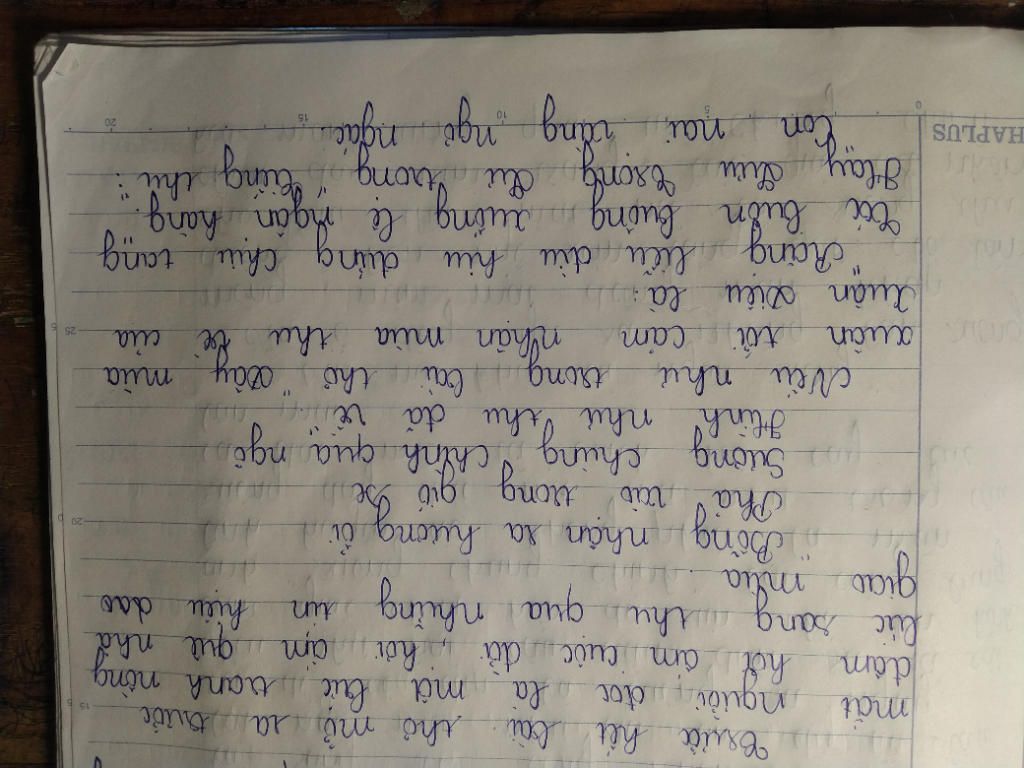 Trước hết bài thơ mở ra trước
mắt người đọc là một bức tranh nồng
đậm hơi ấm cuộc đời, hơi ấm quê nhà
lúc sang thu qua những tín hiệu dao
giao mùa.
"Bỗng nhận ra hương ổi
Phả vào trong gió se
Sương chùng chình qua ngõ
Hình như thu đã về".
Nếu như trong bài thơ "Đây mùa
xuân tới cảm nhận mùa thu về của
Xuân Diệu là:
"Rặng liễu đìu hiu đứng chịu tang
Tóc buồn buông xuống lệ ngàn hàng".
Hay Lưu Trọng Lư trong "Tiếng thu":
"Con nai vàng ngơ ngác,
HAPLUS 0 5 10 15 20